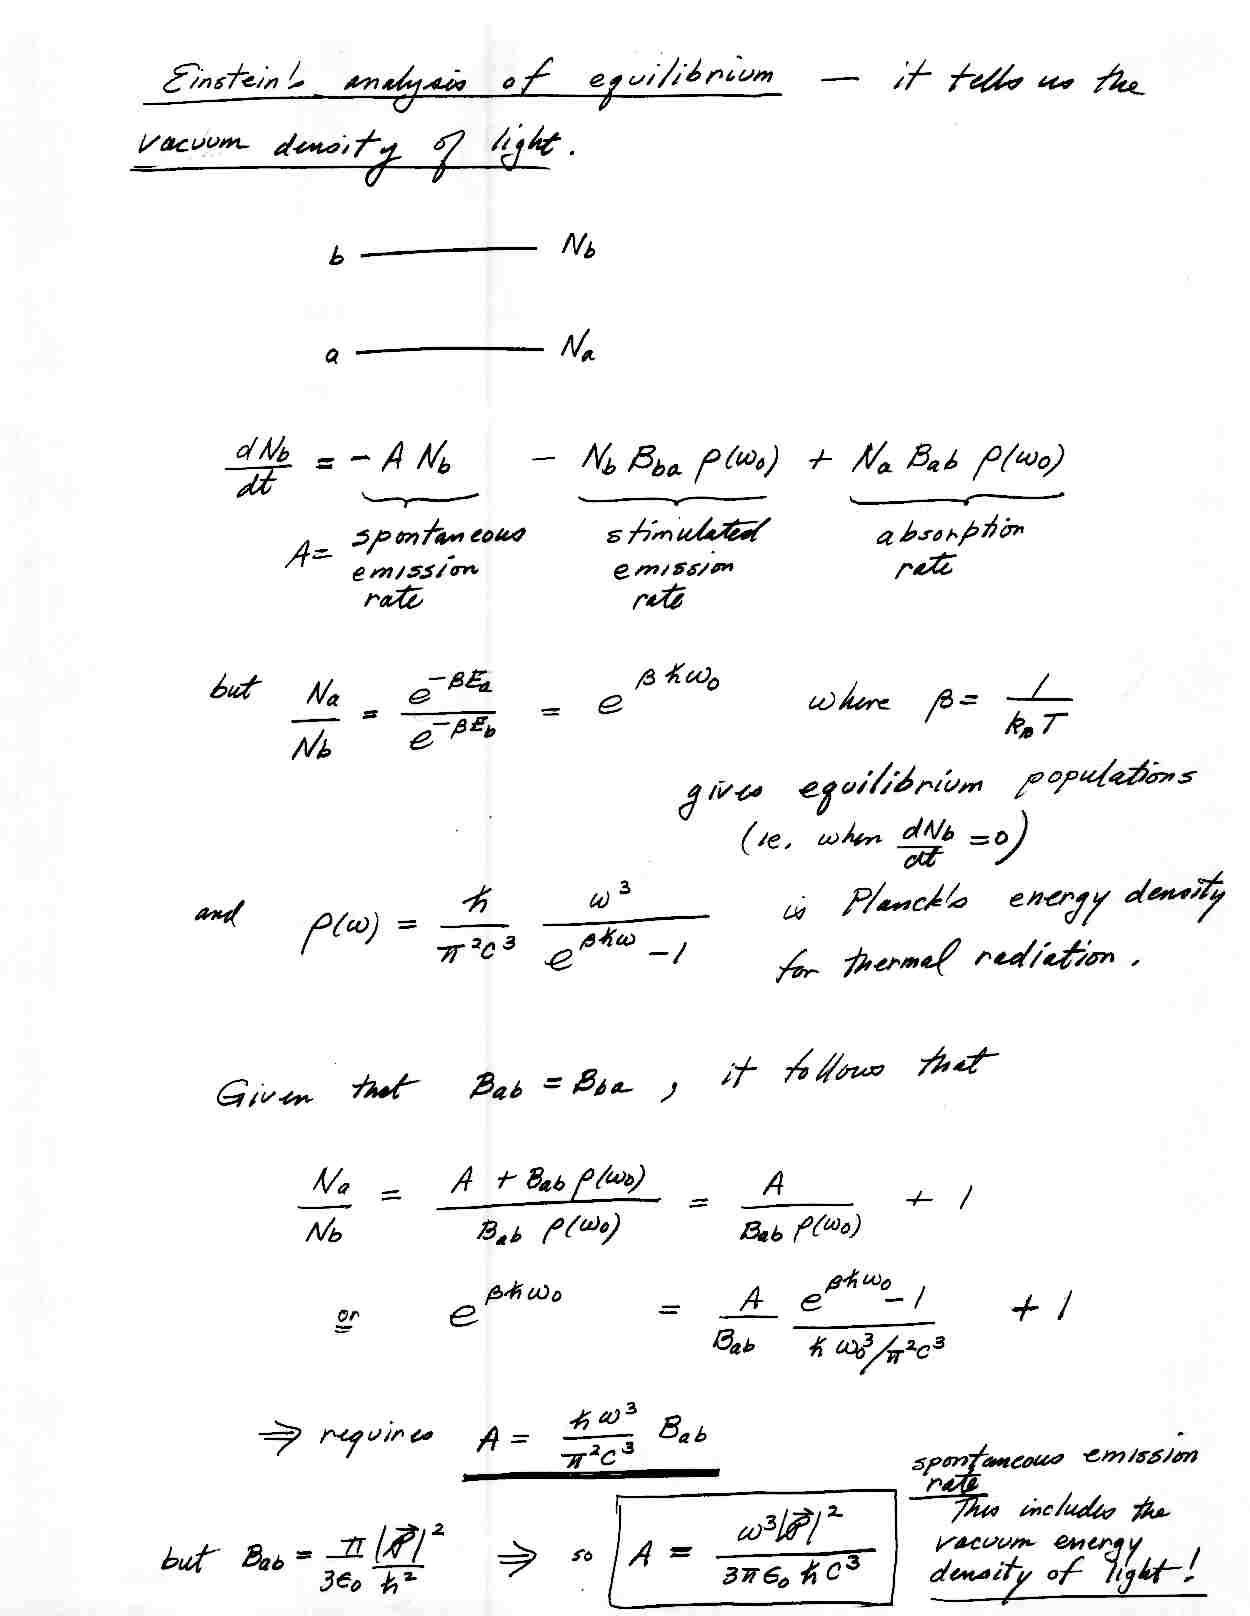 Einstein's analysis of equilibrium — it tells us the
vacuum density of light.
b ——— Nb
a ——— Na
dNb/dt = - A Nb - Nb Bba ρ(ω₀) + Na Bab ρ(ω₀)
A = spontaneous emission rate stimulated emission rate absorption rate
but Na/Nb = e^(-βEa)/e^(-βEb) = e^(βħω₀) where β = 1/(k_B T)
gives equilibrium populations
(ie. when dNb/dt = 0)
and ρ(ω) = ħ/(π²c³) ω³/(e^(βħω) - 1) is Planck's energy density
for thermal radiation.
Given that Bab = Bba, it follows that
Na/Nb = (A + Bab ρ(ω₀))/(Bab ρ(ω₀)) = A/(Bab ρ(ω₀)) + 1
or e^(βħω₀) = A/Bab (e^(βħω₀) - 1)/(ħω₀³/π²c³) + 1
⇒ requires A = ħω³/(π²c³) Bab
spontaneous emission
rate
This includes the
vacuum energy
density of light!
but Bab = π/(3ε₀) |𝒫⃗|²/ħ² ⇒ so A = ω³|𝒫⃗|²/(3πε₀ħc³)